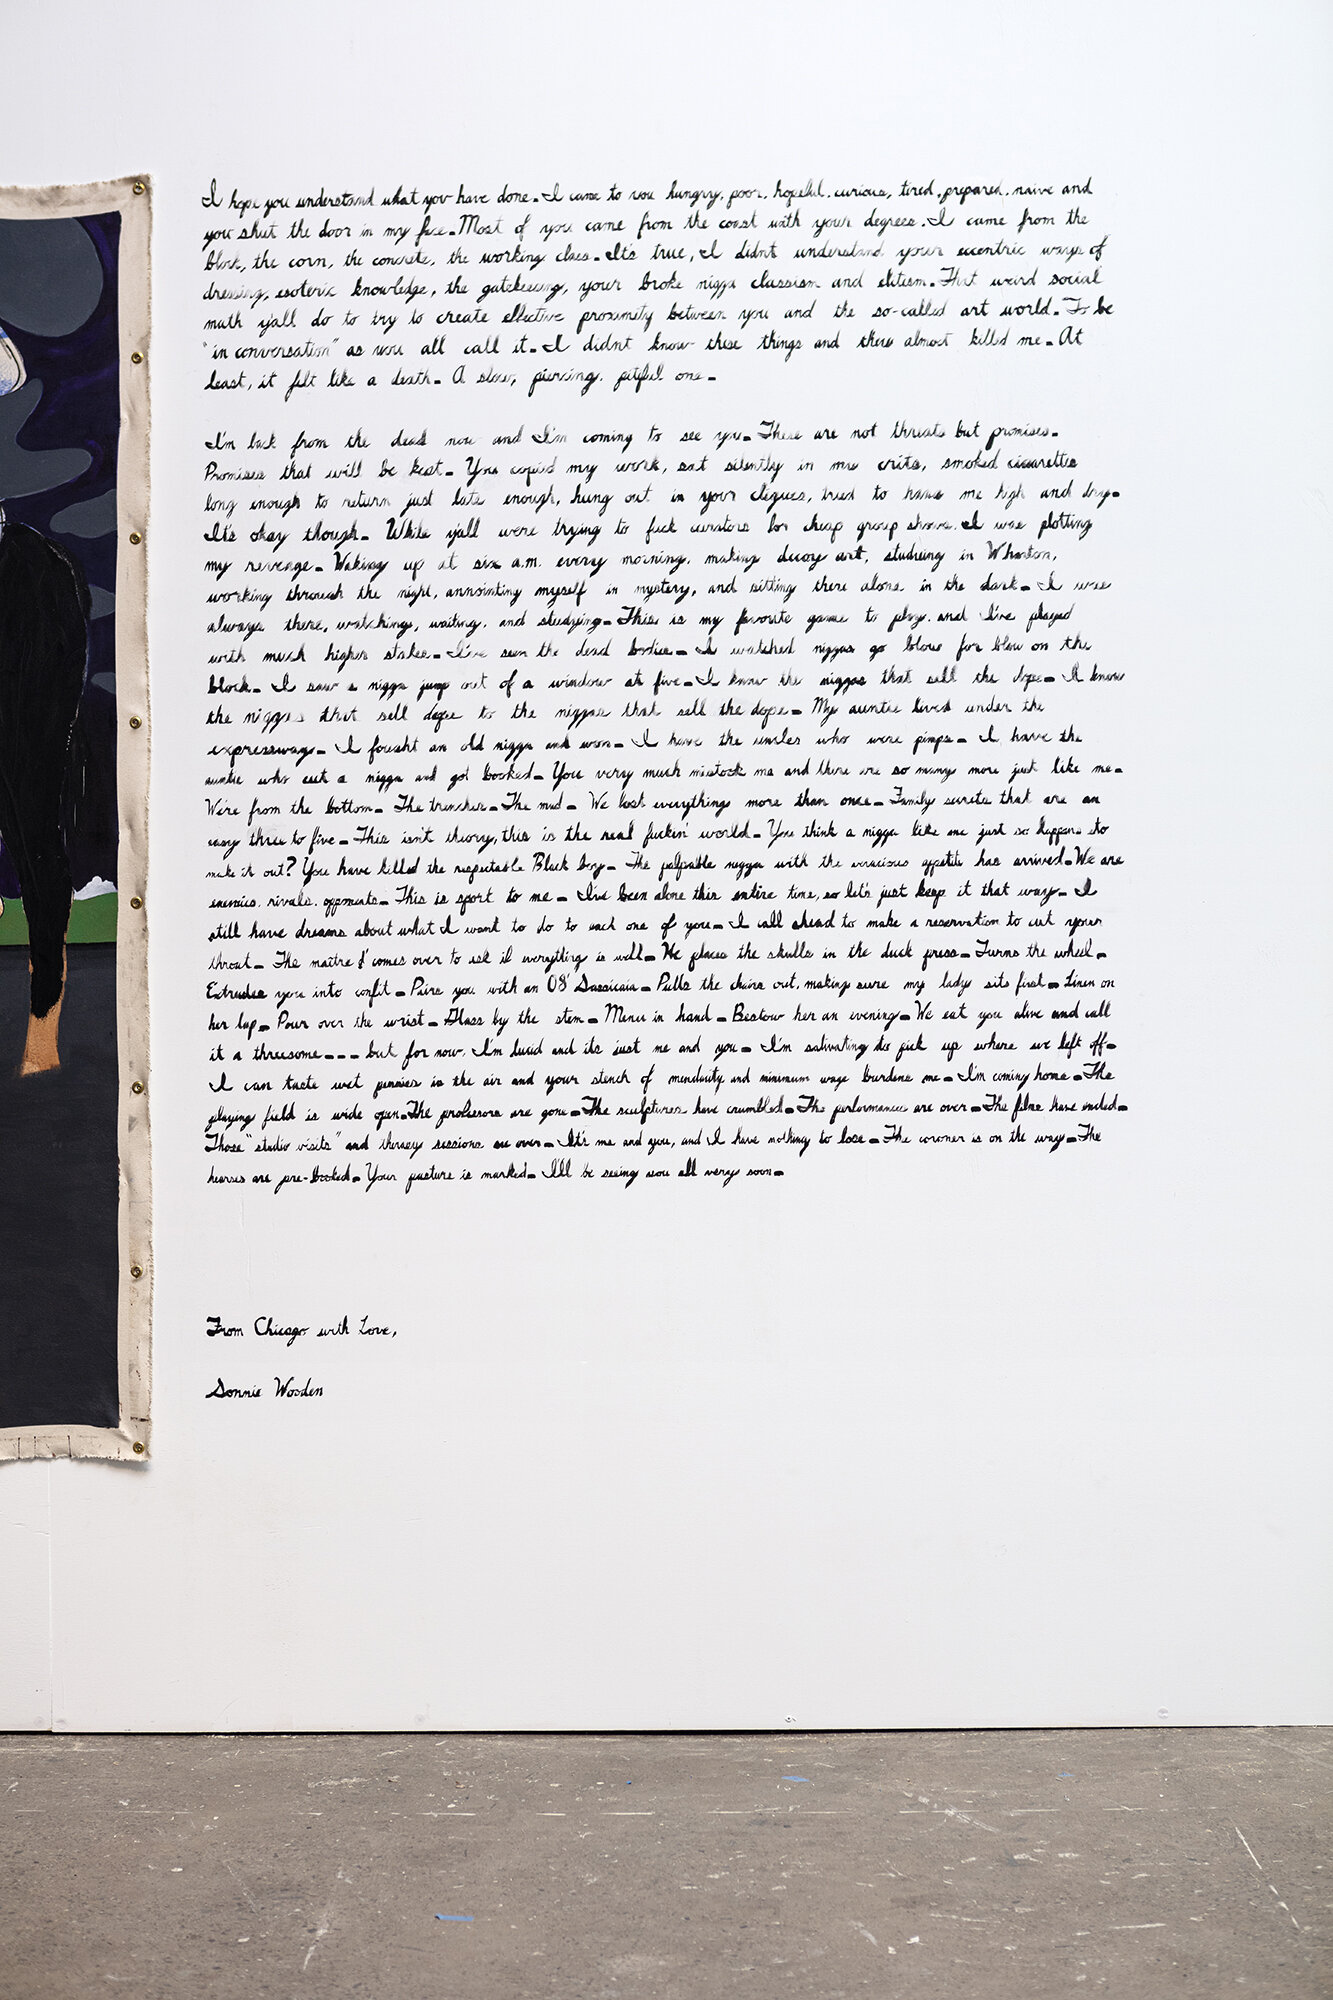 I hope you understand what you have done. I came to you hungry, poor, hopeful, curious, tired, prepared, naive and
you shut the door in my face. Most of you came from the coast with your degrees. I came from the
block, the corn, the concrete, the working class. It's true, I didnt understand your eccentric ways of
dressing, esoteric knowledge, the gatekeeping, your broke nigga classism and elitism. That weird social
math y'all do to try to create effective proximity between you and the so-called art world. To be
"in conversation" as you all call it. I didnt know these things and they almost killed me. At
least, it felt like a death. A slow, piercing, pitiful one.
I'm back from the dead now and I'm coming to see you. These are not threats but promises.
Promises that will be kept. You copied my work, sat silently in my crits, smoked cigarettes
long enough to return just late enough, hung out in your cliques, tried to hang me high and dry.
It's okay though. While y'all were trying to fuck curators for cheap group shows, I was plotting
my revenge. Waking up at six a.m. every morning, making decoy art, studying in Wharton,
working through the night, annointing myself in mystery, and sitting there alone in the dark. I was
always there, watching, waiting, and studying. This is my favorite game to play, and I've played
with much higher stakes. I've seen the dead bodies. I watched niggas go blow for blow on the
block. I saw a nigga jump out of a window at five. I know the niggas that sell the dope. I know
the niggas that sell dope to the niggas that sell the dope. My auntie lived under the
expressway. I fought an old nigga and won. I have the uncles who were pimps. I have the
auntie who cut a nigga and got booked. You very much mistook me and there are so many more just like me.
We're from the bottom. The trenches. The mud. We lost everything more than once. Family secrets that are an
easy three to five. This isn't theory, this is the real fuckin' world. You think a nigga like me just so happens to
make it out? You have killed the respectable Black boy. The palpable nigga with the voracious appetite has arrived. We are
enemies, rivals, opponents. This is sport to me. I've been alone this entire time, so let's just keep it that way. I
still have dreams about what I want to do to each one of you. I call ahead to make a reservation to cut your
throat. The maitre d' comes over to ask if everything is well. He places the skulls in the duck press. Turns the wheel.
Extrudes you into confit. Pairs you with an 08' Sassicaia. Pulls the chairs out, making sure my lady sits first. Linen on
her lap. Pour over the wrist. Glass by the stem. Menu in hand. Bestow her an evening. We eat you alive and call
it a threesome... but for now, I'm lucid and its just me and you. I'm salivating to pick up where we left off.
I can taste wet pennies in the air and your stench of mendacity and minimum wage burdens me. I'm coming home. The
playing field is wide open. The professors are gone. The sculptures have crumbled. The performances are over. The films have ended.
Those "studio visits" and therapy sessions are over. It's me and you, and I have nothing to lose. The coroner is on the way. The
hearses are pre-booked. Your pasture is marked. I'll be seeing you all very soon.
From Chicago with Love,
Donnie Wooden